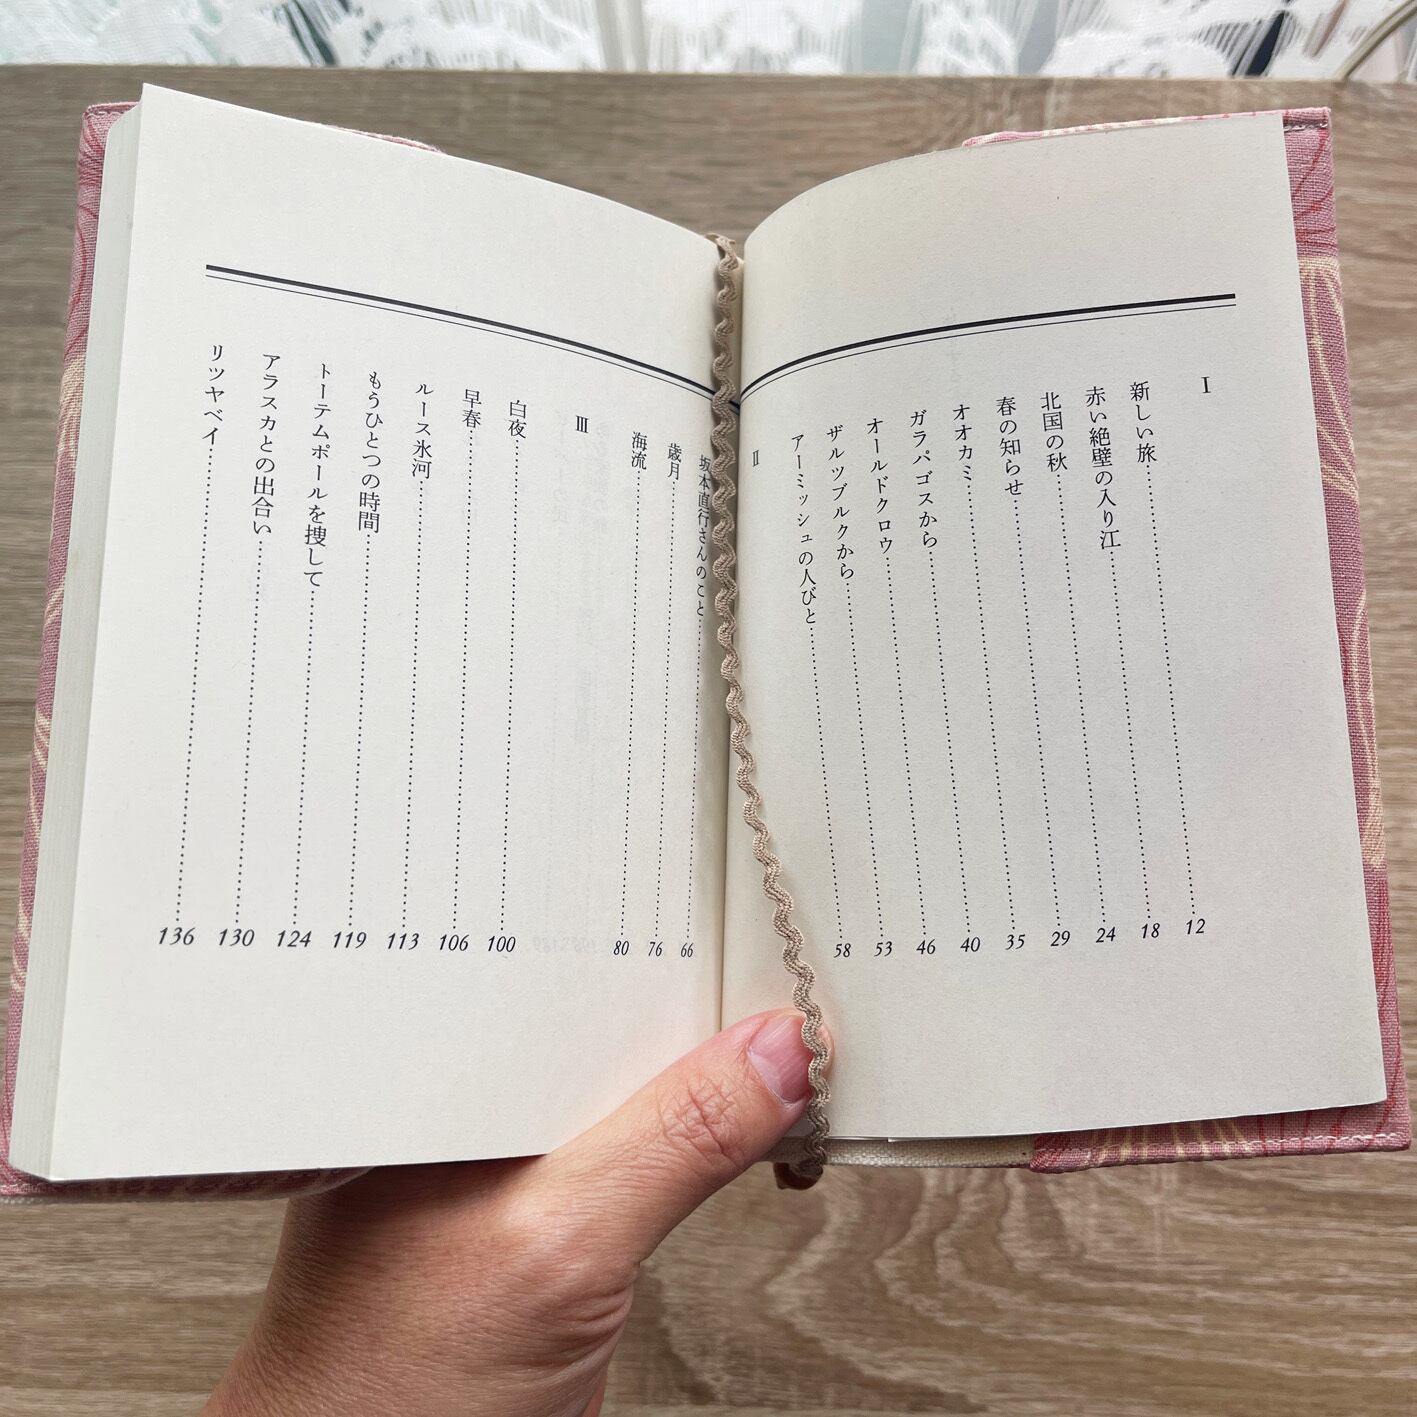 I
新しい旅……12
赤い絶壁の入り江……18
北国の秋……24
春の知らせ……29
オオカミ……35
ガラパゴスから……40
オールドクロウ……46
ザルツブルクから……53
アーミッシュの人びと……58
II
坂本直行さんのこと……66
歳月……76
海流……80
III
白夜……100
早春……106
ルース氷河……113
もうひとつの時間……119
トーテムポールを捜して……124
アラスカとの出合い……130
リツヤベイ……136